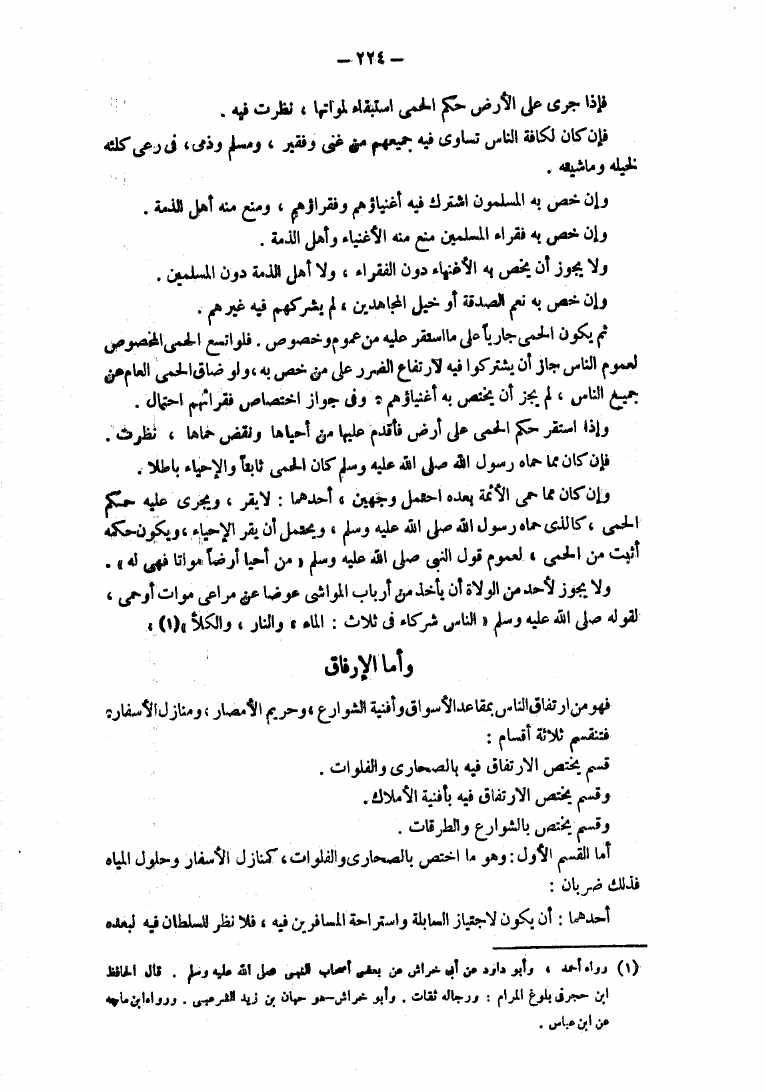 — ٢٢٤ —
فإذا جرى على الأرض حكم الحمى استبقاء لمواتها ، نظرت فيه .
فإن كان لكافة الناس تساوى فيه جميعهم من غنى وفقير ، ومسلم وذمى، فى رعى كلئه
لخيله وماشيته .
وإن خص به المسلمون اشترك فيه أغنياؤهم وفقراؤهم ، ومنع منه أهل الذمة .
وإن خص به فقراء المسلمين منع منه الأغنياء وأهل الذمة .
ولا يجوز أن يخص به الأغنياء دون الفقراء ، ولا أهل الذمة دون المسلمين .
وإن خص به نعم الصدقة أو خيل المجاهدين ، لم يشركهم فيه غيرهم .
ثم يكون الحمى جارياً على ما استقر عليه من عموم وخصوص . فلو اتسع الحمى المخصوص
لعموم الناس جاز أن يشتركوا فيه لارتفاع الضرر على من خص به ، ولو ضاق الحمى العام عن
جميع الناس ، لم يجز أن يختص به أغنياؤهم ، وفى جواز اختصاص فقرائهم احتمال .
وإذا استقر حكم الحمى على أرض فأقدم عليها من أحياها ونقض حماها ، نظرت .
فإن كان مما حماه رسول الله صلى الله عليه وسلم كان الحمى ثابتاً والإحياء باطلا .
وإن كان مما حمى الأئمة بعده احتمل وجهين ، أحدهما : لا يقر ، ويجرى عليه حكم
الحمى ، كالذى حماه رسول الله صلى الله عليه وسلم ، ويحتمل أن يقر الإحياء ، ويكون حكمه
أثبت من الحمى ، لعموم قول النبى صلى الله عليه وسلم « من أحيا أرضاً مواتا فهى له » .
ولا يجوز لأحد من الولاة أن يأخذ من أرباب المواشى عوضا عن مراعى موات أو حمى ،
لقوله صلى الله عليه وسلم « الناس شركاء فى ثلاث : الماء ، والنار ، والكلأ »(١) ،
وأما الإرفاق
فهو من ارتفاق الناس بمقاعد الأسواق وأفنية الشوارع ، وحريم الأمصار ، ومنازل الأسفار ،
فتنقسم ثلاثة أقسام :
قسم يختص الارتفاق فيه بالصحارى والفلوات .
وقسم يختص الارتفاق فيه بأفنية الأملاك .
وقسم يختص بالشوارع والطرقات .
أما القسم الأول : وهو ما اختص بالصحارى والفلوات ، كمنازل الأسفار وحلول المياه
فذلك ضربان :
أحدهما : أن يكون لاجتياز السابلة واستراحة المسافرين فيه ، فلا نظر للسلطان فيه لبعده
(١) رواه أحمد ، وأبو داود عن أبى خراش عن بعض أصحاب النبى صلى الله عليه وسلم . قال الحافظ
ابن حجر فى بلوغ المرام : ورجاله ثقات . وأبو خراش – هو حبان بن زيد الشرعبى . ورواه ابن ماجه
عن ابن عباس .